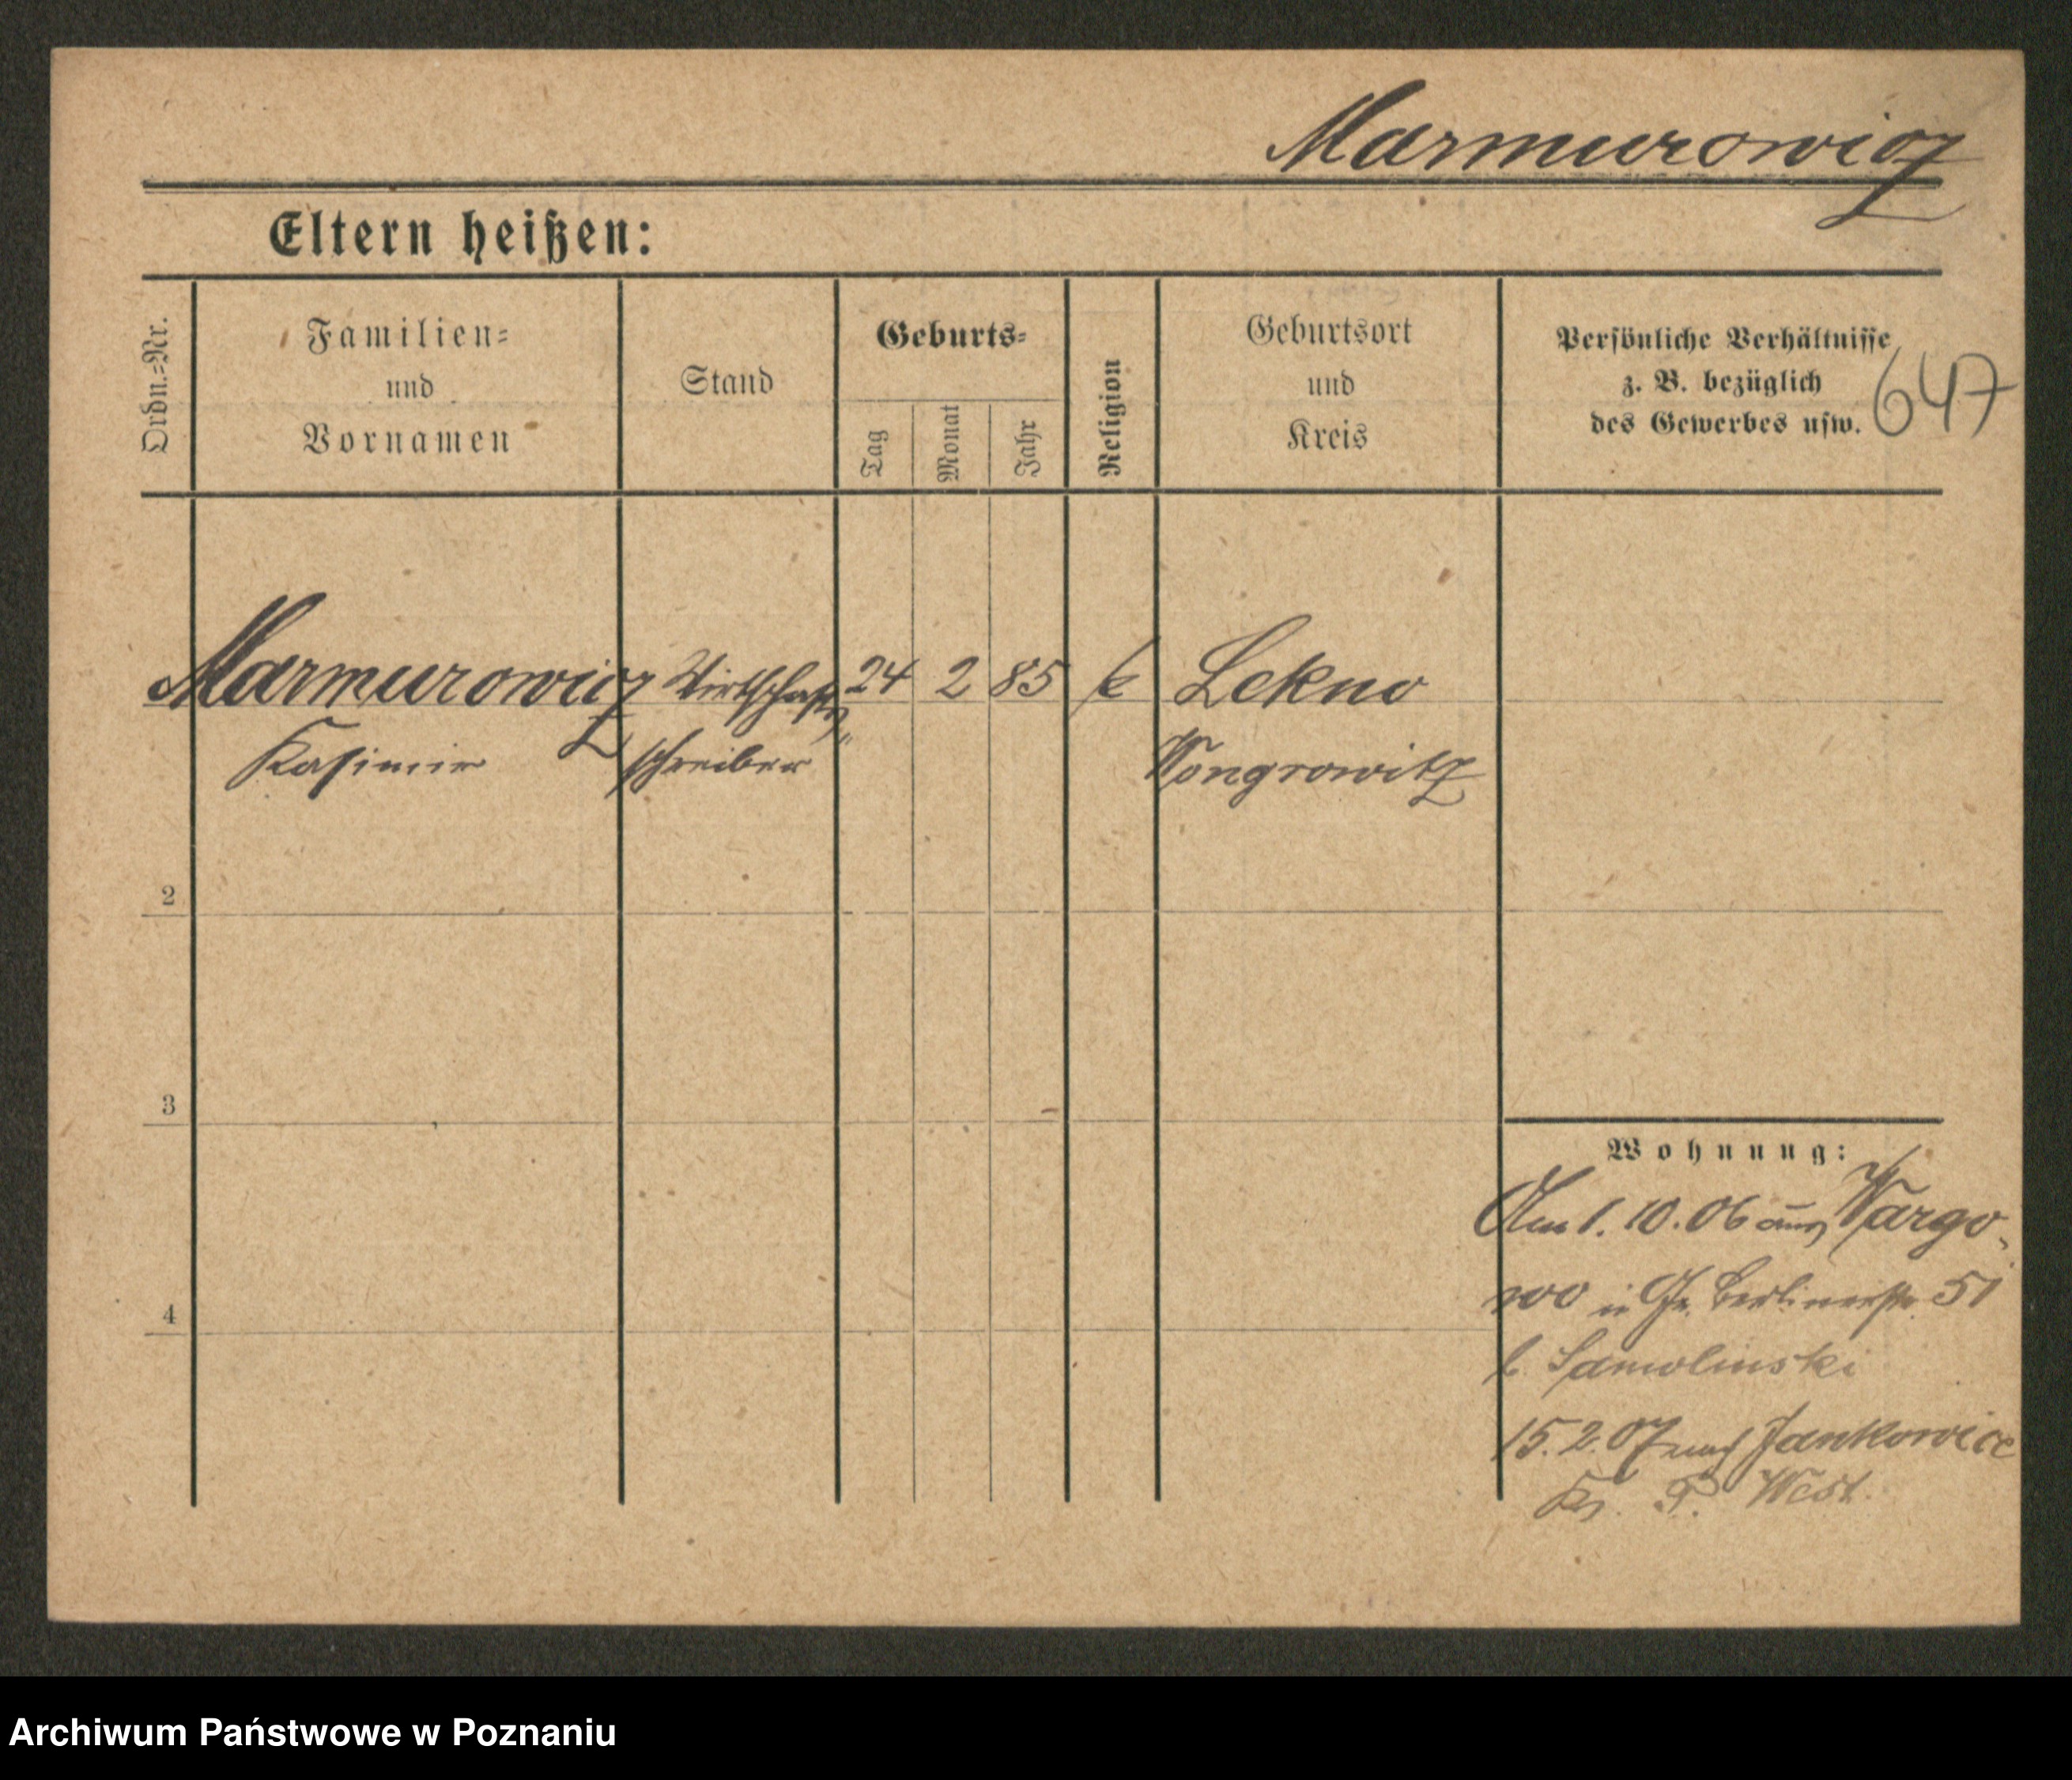 Marmurowicz
Eltern heißen:
Ordn.-Nr.
Familien-
und
Vornamen
Stand
Geburts-
Tag
Monat
Jahr
Religion
Geburtsort
und
Kreis
Persönliche Verhältnisse
z. B. bezüglich
des Gewerbes usw.
647
Marmurowicz Wirtschafts- 24 2 85 k Lekno
Kasimir schreiber Wongrowitz
2
3
4
Wohnung:
Am 1.10.06 aus Wargo-
wo in Gr. Berlinerstr. 51
b. Samolinski
15.2.07 nach Jankowice
Krs. P. West.
Archiwum Państwowe w Poznaniu